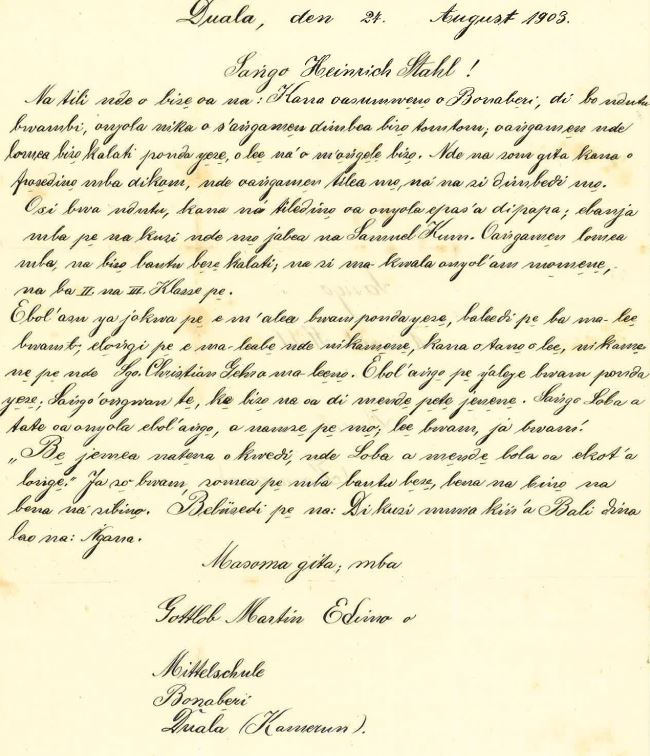 Duala, den 24. August 1903.
Sańgo Heinrich Stahl!
Na tili nde o bise̱ oa na: Kana oasumweno o Bonaberi, di bo ndutu
bwambi, onyola nika o s'ańgamen dimbea biso tomtom; oańgame̱n nde
lomea biso kalati ponda ye̱se̱, o lee ná o m'o̱ńge̱le̱ biso. Nde na som gita kana o
posedino mba dikom, nde oańgamen tilea mo, ná na si dimbedi mo.
O si bwa ndutu, kana na tiledino oa onyola epas'a dipapa; ebanja
mba pe na kusi nde mo jabea na Samuel Kum. Oańgame̱n lomea
mba, na biso bantu be̱se̱ kalati; na si ma-kwala onyol'am mome̱ne̱,
na ba II. na III. Klasse pe.
Ebol'asu ya jokwa pe e m'ale̱a bwam ponda ye̱se̱, baleedi pe ba ma-lee
bwam; pe e ma-leabe̱ nde nikame̱ne̱, kana o tano o lee, nikame̱-
ne̱ pe nde Sgo. Christian Gehr a ma-leeno. Ebol'ańgo pe bwam ponda
ye̱se̱; Sańgo'ońgwań te̱, ke̱ biso na oa di me̱nde̱ pe̱te̱ je̱ne̱ne̱. Sańgo Loba a
tate oa onyola ebol'ańgo, a namse̱ pe mo; lee bwam, ja bwam!
„Be̱ jemea natena o kwedi, nde Loba a me̱nde̱ bola oa ekot'a
longe." Ja so bwam, somea pe mba bantu be̱se̱, bena na bino na
bena ná si bino. Bebüsedi pe na: Di kusi muna kiń'a Bali dina
lao na: Ngana.
Masoma gita; mba
Gottlob Martin Edimo o
Mittelschule
Bonaberi
Duala (Kamerun).